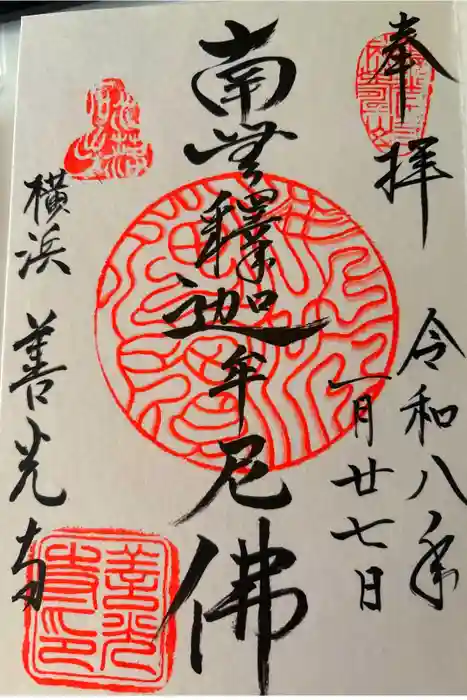 奉拝
令和八年
一月廿七日
南無釋迦牟尼佛
横浜 善光寺
善光寺印